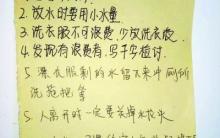 2. 放水时要用小水量
3. 洗衣服不可浪费，少放洗衣液
4. 发现有浪费者，写千字检讨
5. 漂衣服剩的水留下来冲厕所
洗拖把等
5. 人离开时一定要关掉水龙头